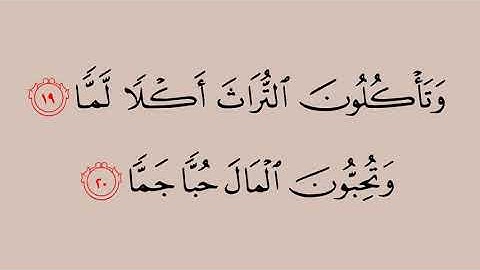 وَتَأْكُلُونَ ٱلتُّرَاثَ أَكْلًا لَّمًّا ١٩
وَتُحِبُّونَ ٱلْمَالَ حُبًّا جَمًّا ٢٠